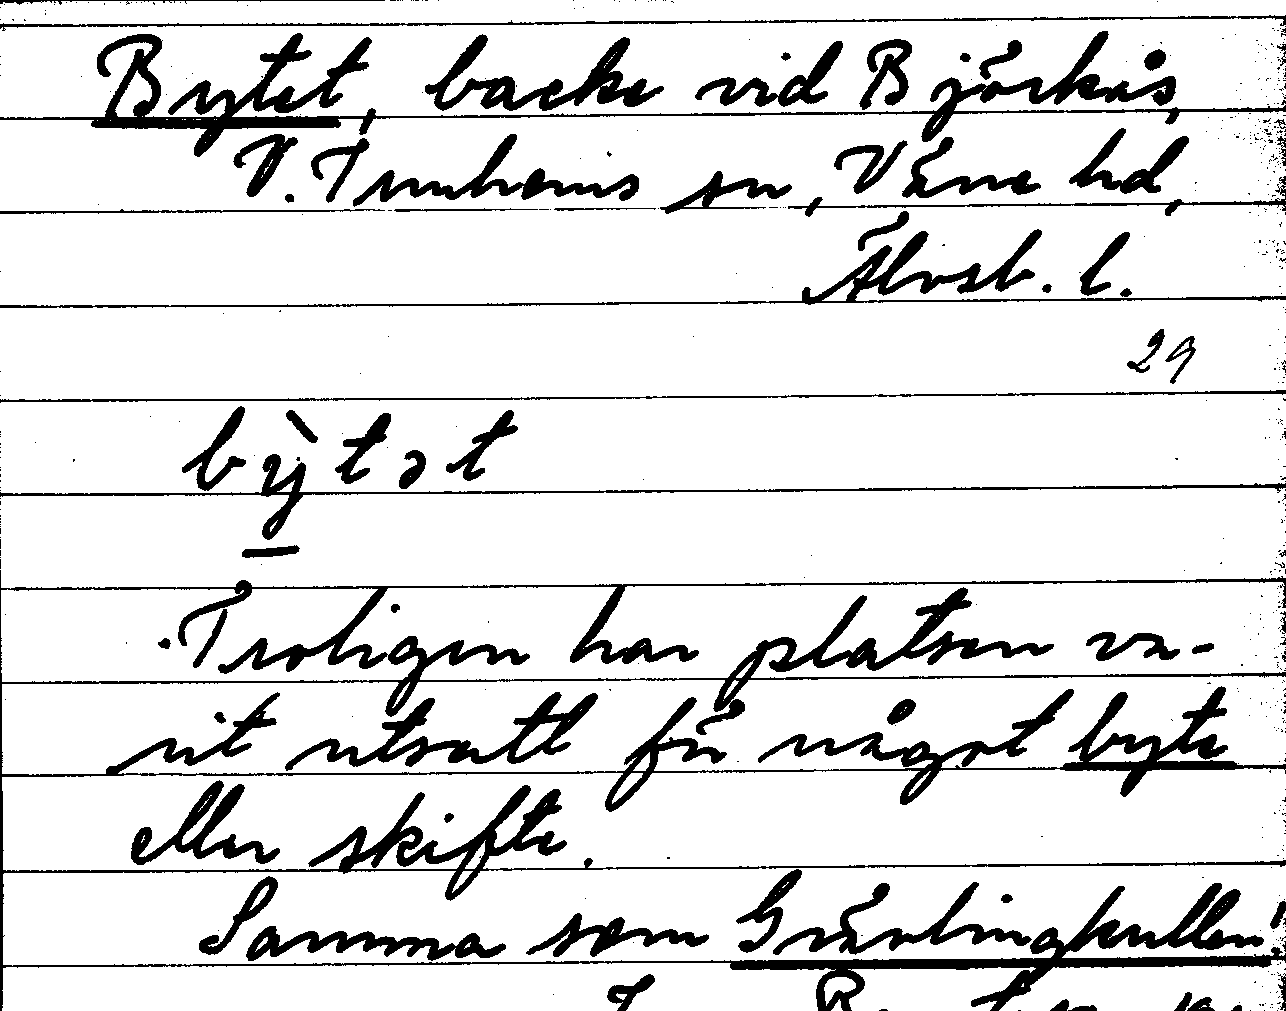 Bytet, backe vid Björkås,
V. Tunhems sn, Väne hd,
Älvsb. l.
29
bỳtət
Troligen har platsen va-
rit utsatt för något byte
eller skifte.
Samma som Grävlingkullen!